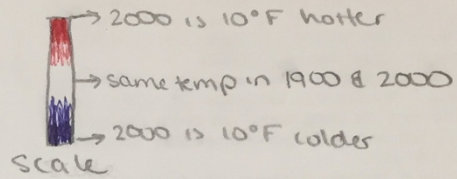 2000 is 10°F hotter
same temp in 1900 & 2000
2000 is 10°F colder
Scale